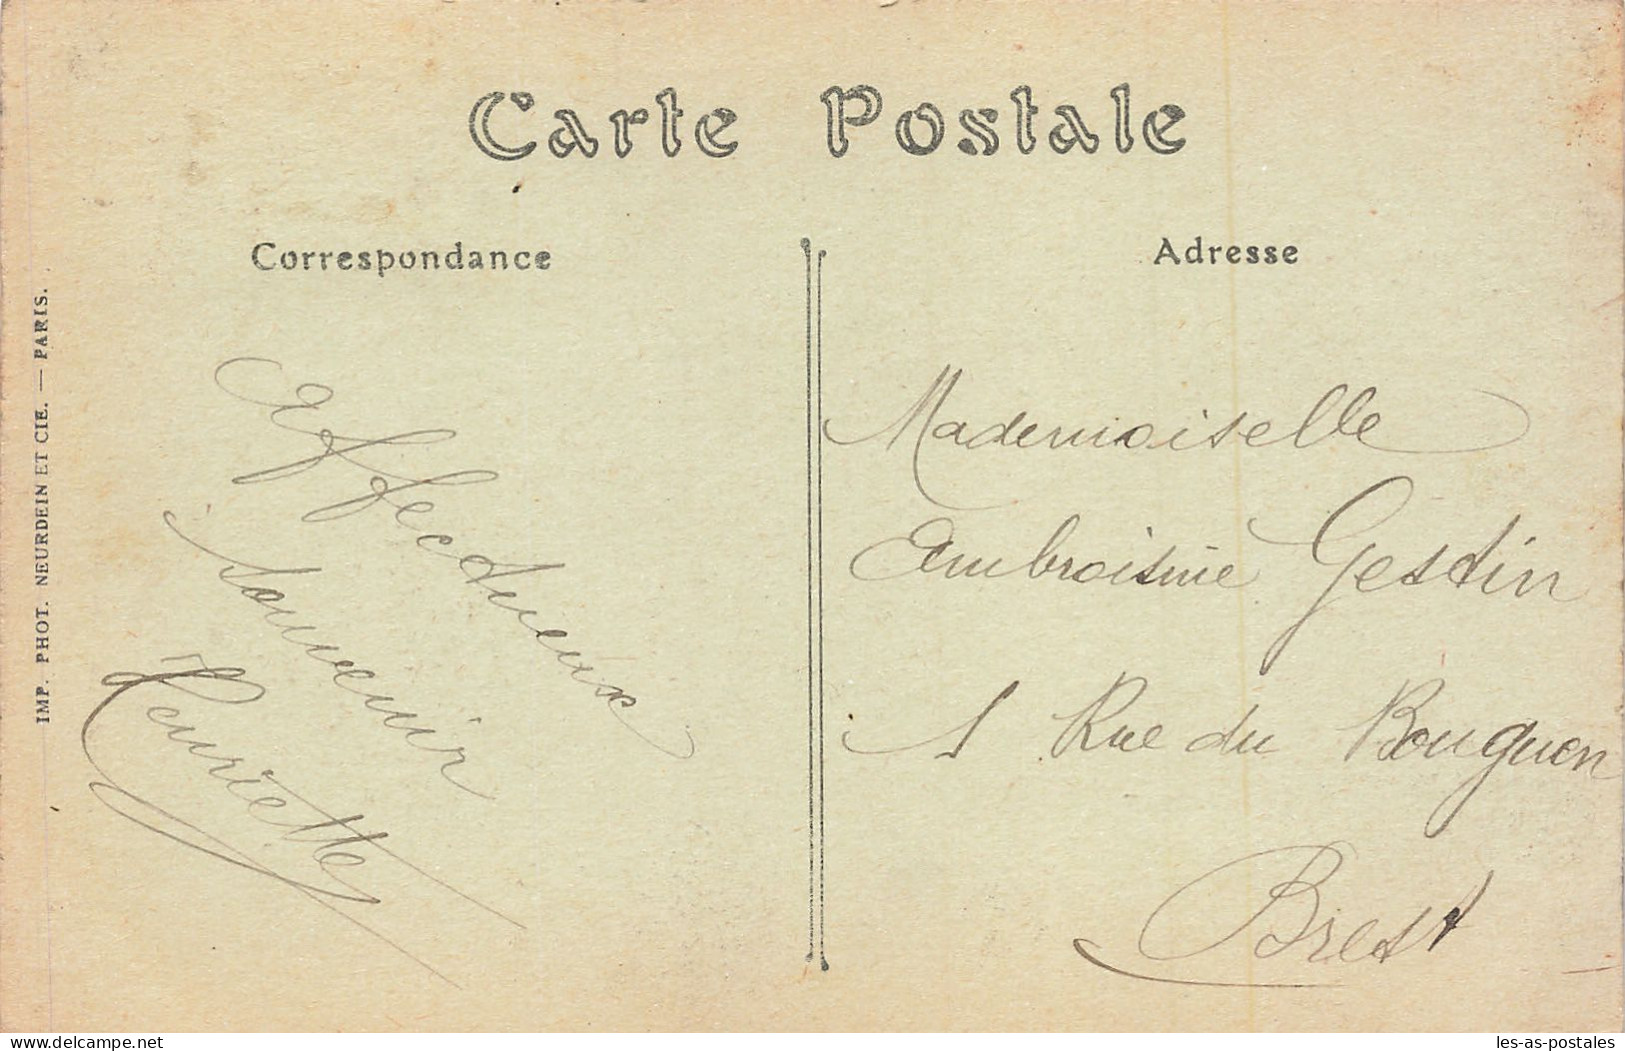 Carte Postale
Correspondance
Adresse
IMP. PHOT. NEURDEIN ET CIE. — PARIS.
Affectueux
Souvenir
Henriette
Mademoiselle
Ambroisine Gestin
1 Rue du Bouguen
Brest
Delcampe.net
les-as-postales